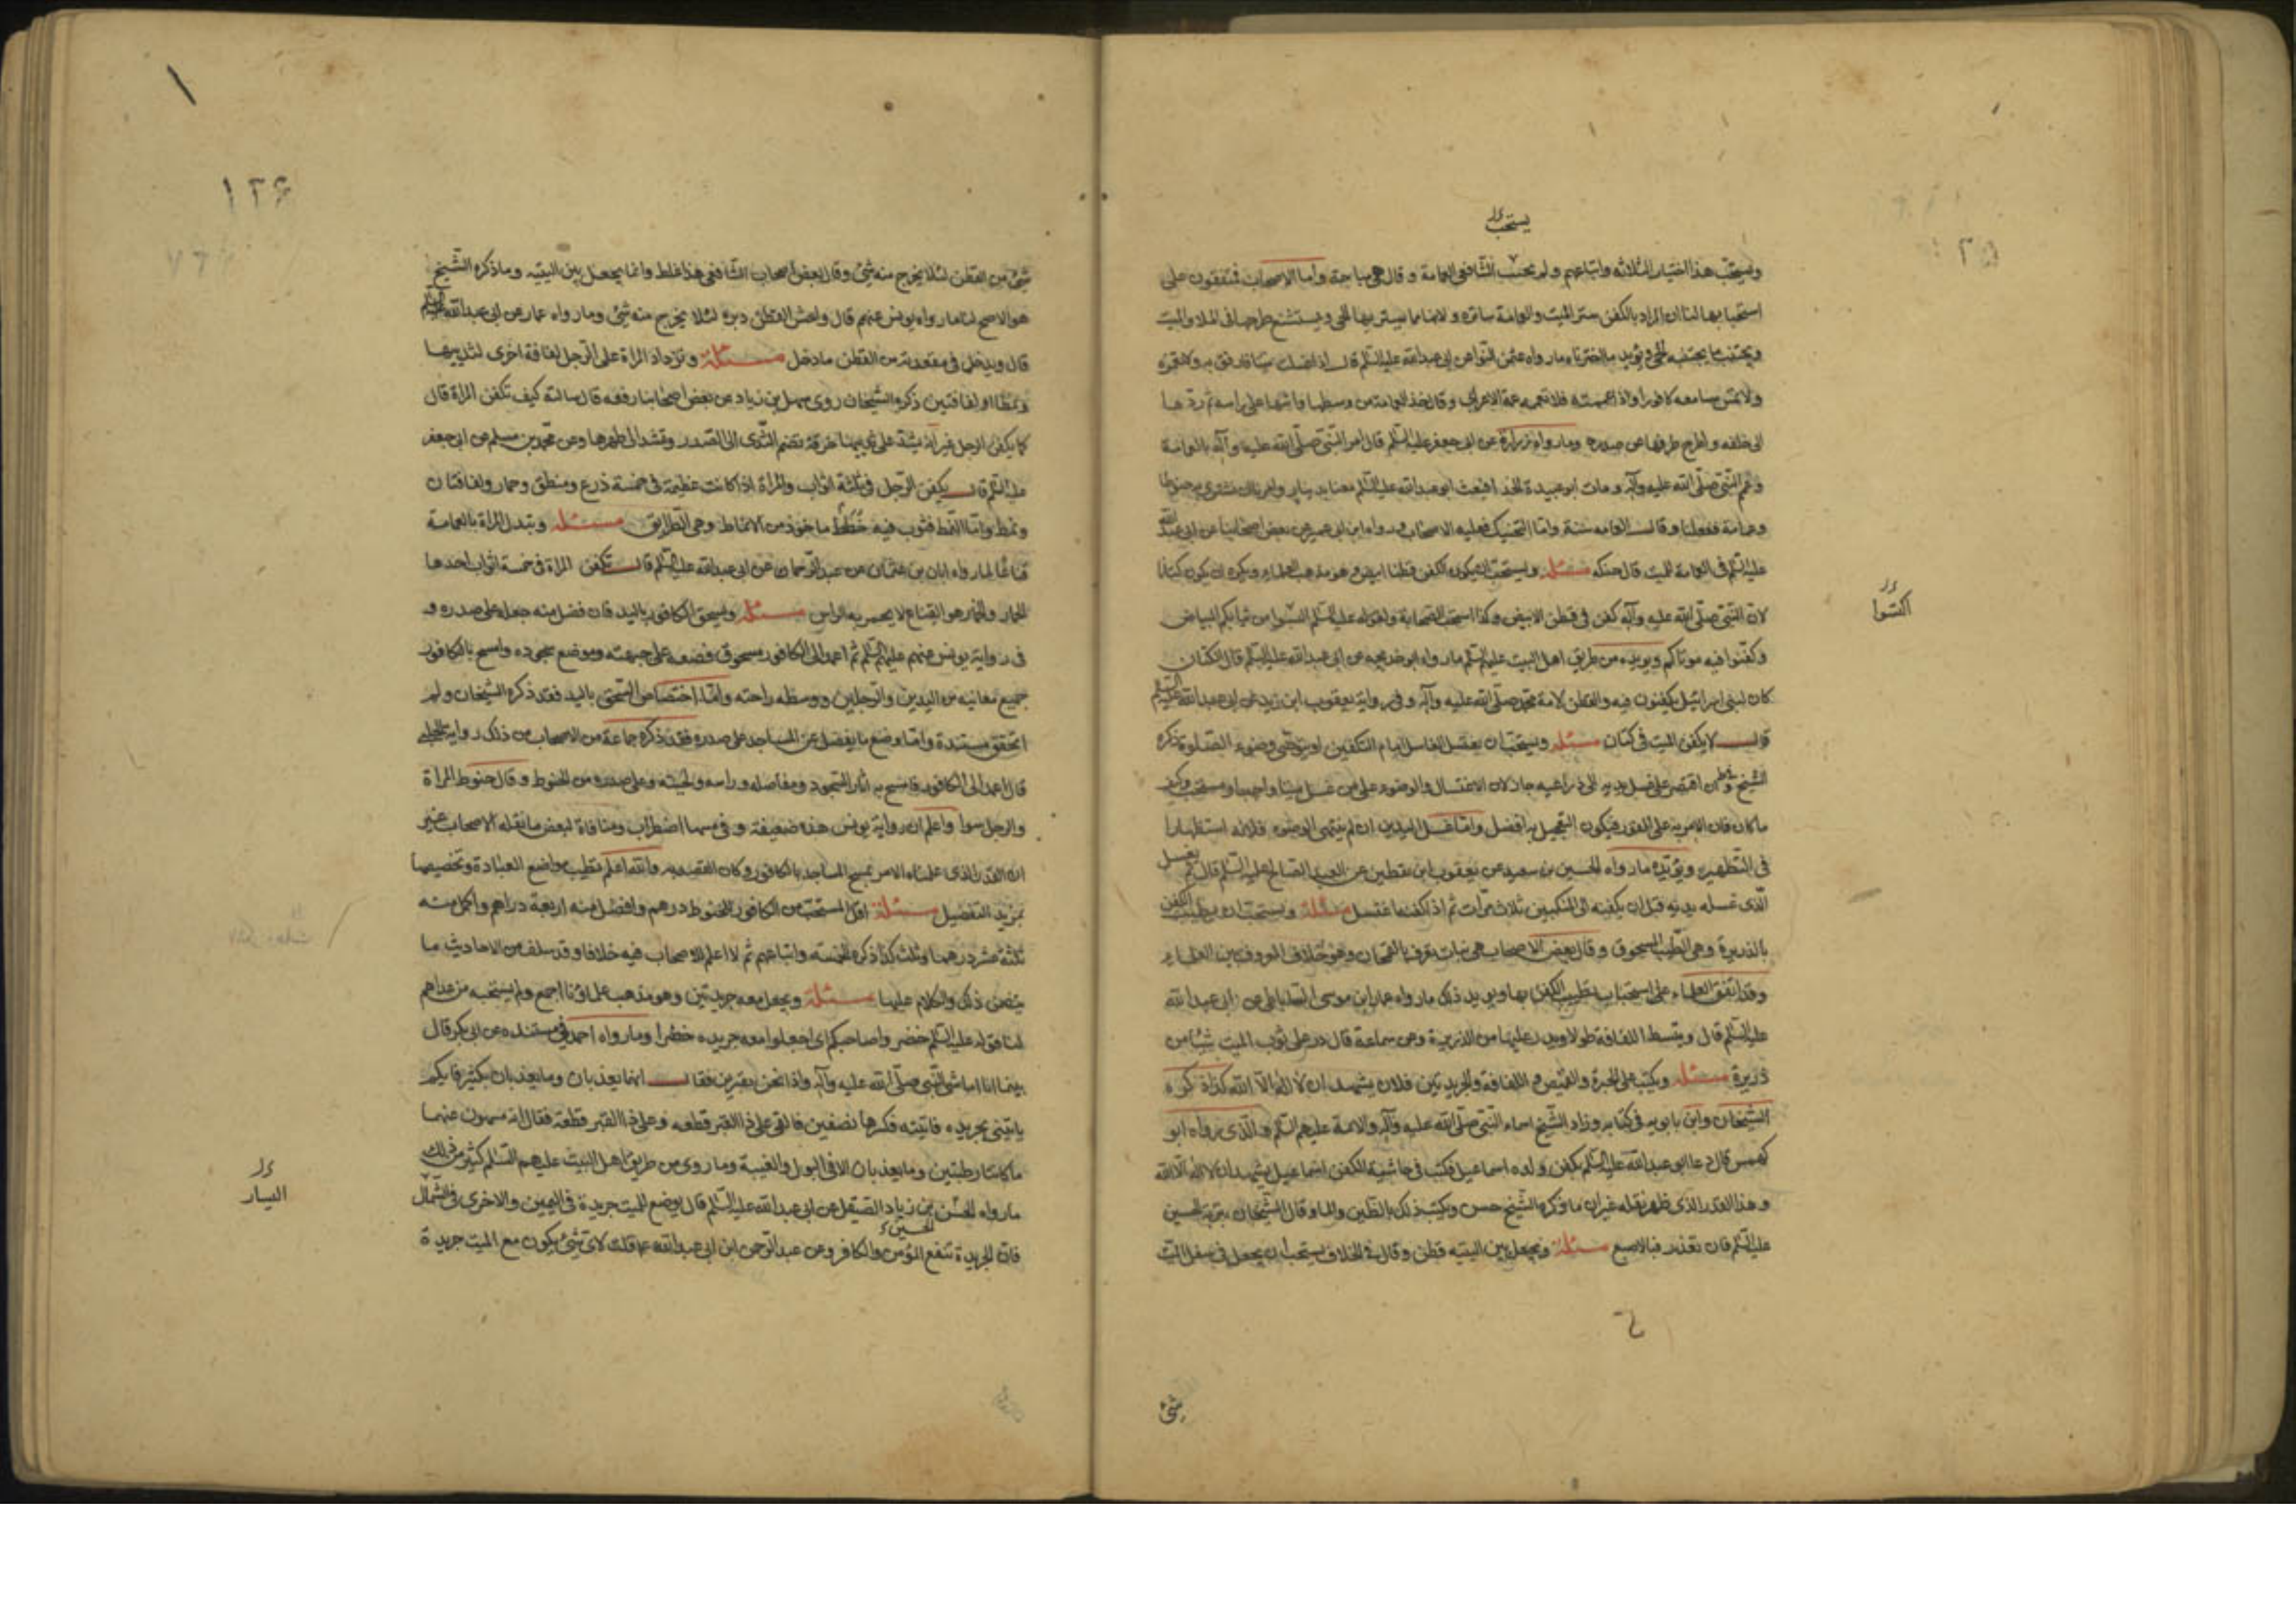 يستحب
ويستحب هذا اختيار الثلاثه واتباعهم ولم يستحب الشافعي العمامة وقال هي مباحة وأما الاصحاب فمتفقون على
استحبابها لنا ان المراد بالكفن ستر الميت والعمامة ساتره ولانها مما يستر بها الحي ويستشنع طرحها في الملاء والميت
ويجتنب ما يجتنبه الحي ويؤيد ما اخترناه مارواه عثمن النوا عن ابي عبدالله عليه السلم قال اذا غسلت ميتا فارفق به ولا تعصره
ولا تمس مسامعه كافورا واذا عممته فلا تعممه عمة الاعرابي وقال خذ العمامة من وسطها وانشرها على راسه ثم ردها
الى خلفه واطرح طرفيها عن صدره ومارواه زرارة عن ابي جعفر عليه السلم قال امر النبي صلى الله عليه وآله بالعمامة
وعم النبي صلى الله عليه وآله ومات ابو عبيدة الحذا فبعث ابو عبدالله عليه السلم معنا بدينار وامرنا ان نشتري به حنوطا
وعمامة ففعلنا وقالت العامه سنة واما التحنيك فعليه الاصحاب ورواه ابن ابي عمير عن بعض اصحابنا عن ابي عبد الله
عليه السلم في العمامة للميت قال حنكه مسئلة ويستحب ان يكون الكفن قطنا ابيض وهو مذهب العلماء ويكره ان يكون كتانا
لان النبي صلى الله عليه وآله كفن في قطن الابيض وكذا استحب الصحابة ولقوله عليه السلم البسوا من ثيابكم البياض
اكتسوا
وكفنوا فيه موتاكم ويؤيده من طريق اهل البيت عليهم السلم مارواه ابو خديجه عن ابي عبدالله عليه السلم قال الكتان
كان لبني اسرائيل يكفنون فيه والقطن لامة محمد صلى الله عليه وآله وفي رواية يعقوب ابن يزيد عن ابي عبدالله عليه السلم
قال لا يكفن الميت في كتان مسئلة ويستحب ان يغتسل الغاسل امام التكفين او يتوضي وضوء الصلوة ذكره
الشيخ فان اقتصر على غسل يديه الى ذراعيه جاز لان الاغتسال والوضوء على من غسل ميتا واجب او مستحب وكيف
ما كان فان الامر به على الفور فيكون التعجيل به افضل واما غسل اليدين ان لم يتهيا الوضوء فلانه استظهارا
في التطهير ويؤيده مارواه الحسين بن سعيد عن يعقوب ابن يقطين عن العبد الصالح عليه السلم قال ثم يغسل
الذي غسله يديه قبل ان يكفنه الى المنكبين ثلاث مرات ثم اذا كفنه اغتسل مسئلة ويستحب ان يطيب الكفن
بالذريرة وهي الطيب المسحوق وقال بعض الاصحاب هي نبات يعرف بالقمحان وهو خلاف المعروف بين العلماء
وقد اتفق العلماء على استحباب تطييب الكفن بها ويؤيد ذلك مارواه عمار ابن موسى الساباطي عن ابي عبدالله
عليه السلم قال ويبسط اللفافة طولا ويذر عليها من الذريرة وعن سماعة قال ذر على ثوب الميت شيئا من
ذريرة مسئلة ويكتب على الحبرة والقميص واللفافة والجريدتين فلان يشهد ان لا اله الا الله كذا ذكره
الشيخان وابن بابويه في كتابه وزاد الشيخ اسماء النبي صلى الله عليه وآله والائمة عليهم السلم والذي رواه ابو
كهمس قال دعا ابو عبدالله عليه السلم بكفن ولده اسماعيل فكتب في حاشية الكفن اسماعيل يشهد ان لا اله الا الله
وهذا القدر الذي ظهر نقله غير ان ما ذكره الشيخ حسن ويكتب ذلك بالطين والماء وقال الشيخان بتربة الحسين
عليه السلم فان تعذر فبالاصبع مسئلة ويجعل بين اليتيه قطن وقال في الخلاف يستحب ان يجعل في سفل الميت
شئ
١٢٤
شئ من القطن لئلا يخرج منه شئ وقال بعض اصحاب الشافعي هذا غلط وانما يجعل بين اليتيه وما ذكره الشيخ
هو الاصح لنا مارواه يونس عنهم قال واحش القطن دبره لئلا يخرج منه شئ ومارواه عمار عن ابي عبدالله عليه السلم
قال ويدخل في مقعدته من القطن ما دخل مسئلة وتزداد المراة على الرجل لفافة اخرى لثدييها
ونمطا او لفافتين ذكره الشيخان روى سهل بن زياد عن بعض اصحابنا رفعه قال سالته كيف تكفن المراة قال
كما يكفن الرجل غير انه يشد على ثدييها خرقة تضم الثدي الى الصدر وتشد الى ظهرها وعن محمد بن مسلم عن ابي جعفر
عليه السلم قال يكفن الرجل في ثلثة اثواب والمراة اذا كانت عظيمة في خمسة درع ومنطق وخمار ولفافتان
ونمط واما النمط فثوب فيه خطط ماخوذ من الانماط وهي الطرايق مسئلة وتبدل المراة بالعمامة
قناعا لمارواه ابان بن عثمان عن عبدالرحمان عن ابي عبدالله عليه السلم قال تكفن المراة في خمسة اثواب احدها
الخمار والخمار هو القناع لا يخمر به الراس مسئلة ويسحق الكافور باليد فان فضل منه جعله على صدره و
في رواية يونس عنهم عليهم السلم ثم اعمد الى الكافور مسحوق فضعه على جبهته وموضع سجوده وامسح بالكافور
جميع مغابنه من اليدين والرجلين ووسط راحته واما اختصاص السحق باليد فقد ذكره الشيخان ولم
اتحقق مستنده واما وضع ما يفضل عن المساجد على صدره فقد ذكره جماعة من الاصحاب من ذلك رواية الحلبي
قال اعمد الى الكافور فامسح به آثار السجود ومفاصله وراسه ولحيته وعلى صدره من الحنوط وقال حنوط المراة
والرجل سوا واعلم ان رواية يونس هذه ضعيفة وفي اضطراب ومنافاة لبعض ما نقله الاصحاب غير
ان القدر الذي علمناه الامر بمسح المساجد بالكافور وكان القصد به والله اعلم تطيب مواضع العبادة وتخصيصها
بمزيد التفضيل مسئلة اقل المستحب من الكافور للحنوط درهم وافضل منه اربعة دراهم واكمل منه
ثلثة عشر درهما وثلث كذا ذكره الخمسة واتباعهم ثم لا اعلم للاصحاب فيه خلافا وقد سلف من الاحاديث ما
يتضمن ذلك والكلام عليها مسئلة ويجعل معه جريدتين وهو مذهب علماؤنا اجمع ولم يستحبه من عداهم
لنا قوله عليه السلم خضروا صاحبكم اى اجعلوا معه جريده خضرا ومارواه احمد في مسنده عن ابي بكر قال
بينما انا اماشي النبي صلى الله عليه وآله واذا نحن بقبرين فقال انهما يعذبان وما يعذبان بكثير فايكم
ياتيني بجريده فاتيته فكسرها نصفين فالقى على ذا القبر قطعه وعلى ذا القبر قطعة فقال انه سيهون عنهما
ما كانتا رطبتين وما يعذبان الا في البول والغيبة وما روى من طريق اهل البيت عليهم السلم كثير من ذلك
مارواه الحسن بن زياد الصيقل عن ابي عبدالله عليه السلم قال يوضع للميت جريدة في اليمين والاخرى في الشمال
اليسار
الحسين
فان الجريدة تنفع المؤمن والكافر وعن عبدالرحمن ابن ابي عبدالله عما قلت لاى شئ يكون مع الميت جريدة